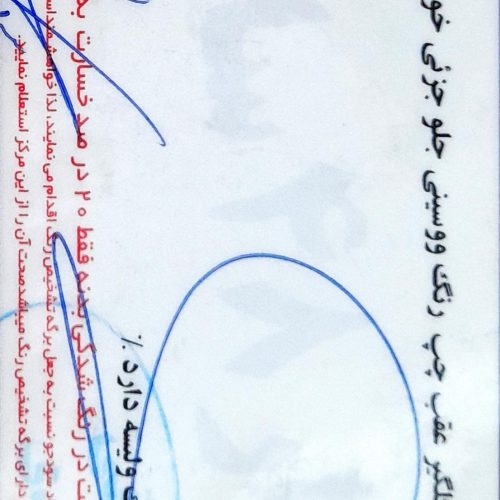 عقب چپ رنگ ووسینی جلو جزئی
ولیسه دارد %
در رنگ شدگی بدنه فقط ۲۰ در صد خسارت
سودجو نسبت به جعل برگه تشخیص رنگ اقدام می نمایند، لذا خواهشمند است
دارای برگه تشخیص رنگ میباشد صحت آن را از این مرکز استعلام نمایید.